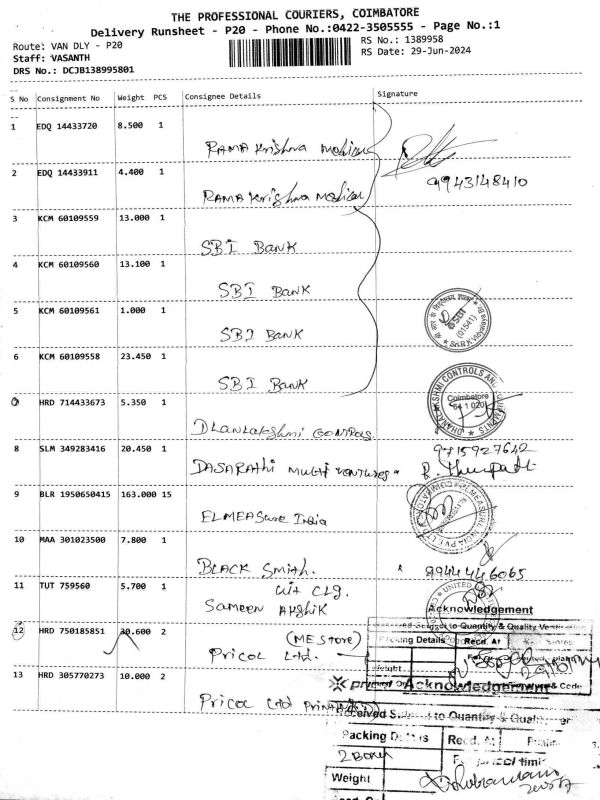 THE PROFESSIONAL COURIERS, COIMBATORE
Delivery Runsheet - P20 - Phone No.:0422-3505555 - Page No.:1
Route: VAN DLY - P20
RS No.: 1389958
Staff: VASANTH
RS Date: 29-Jun-2024
DRS No.: DCJB138995801
S No Consignment No Weight PCS Consignee Details Signature
1 EDQ 14433720 8.500 1
RAMA Krishna Medical
2 EDQ 14433911 4.400 1
9943148410
RAMA Krishna Medical
3 KCM 60109559 13.000 1
SBI Bank
4 KCM 60109560 13.100 1
SBI Bank
5 KCM 60109561 1.000 1
SBI (01541)
SBI Bank
6 KCM 60109558 23.450 1
SBI Bank
7 HRD 714433673 5.350 1
DHANALAKSHMI CONTROLS AND
Coimbatore
641 020
8 SLM 349283416 20.450 1
9715927642
DASARATHI MULTI VENTURES
9 BLR 1950650415 163.000 15
ELMEASure India
10 MAA 301023500 7.800 1
BLACK Smith.
9944446065
11 TUT 759560 5.700 1
Cit Clg.
SAMEEN
Acknowledgement
12 HRD 750185851 30.600 2
(ME Store)
Pricol Ltd.
Packing Details Recd. At
Weight
13 HRD 305770273 10.000 2
pricol
Acknowledgement
Pricol Ltd
Received Subject to Quantity & Quality
Packing Details Recd. At
2 Boxes
Weight